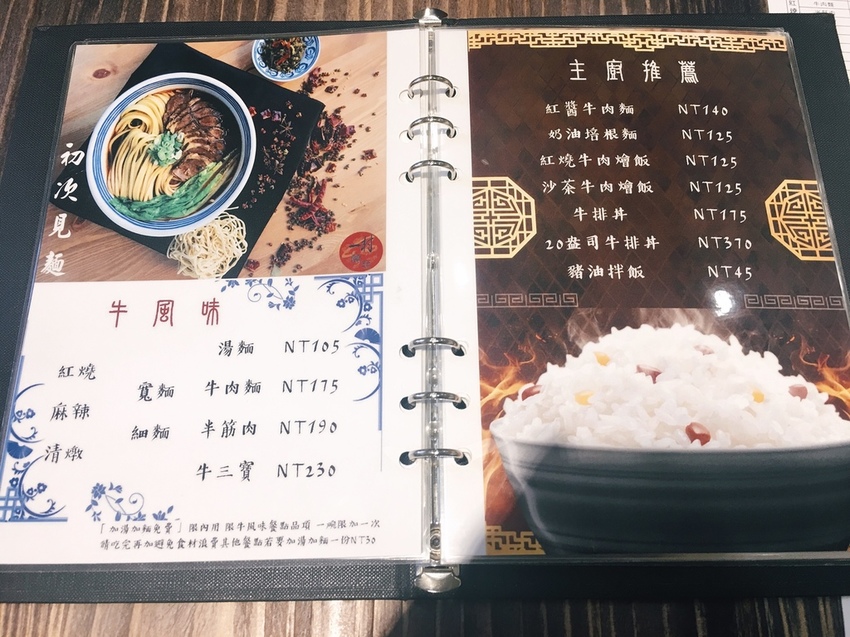 初次見麵
牛風味
湯麵 NT105
紅燒
寬麵 牛肉麵 NT175
麻辣
細麵 半筋肉 NT190
清燉
牛三寶 NT230
「加湯加麵免費」限內用 限牛風味餐點品項 一碗限加一次
請吃完再加避免食材浪費其他餐點若要加湯加麵一份NT30
主廚推薦
紅醬牛肉麵 NT140
奶油培根麵 NT125
紅燒牛肉燴飯 NT125
沙茶牛肉燴飯 NT125
牛排丼 NT175
20盎司牛排丼 NT370
豬油拌飯 NT45